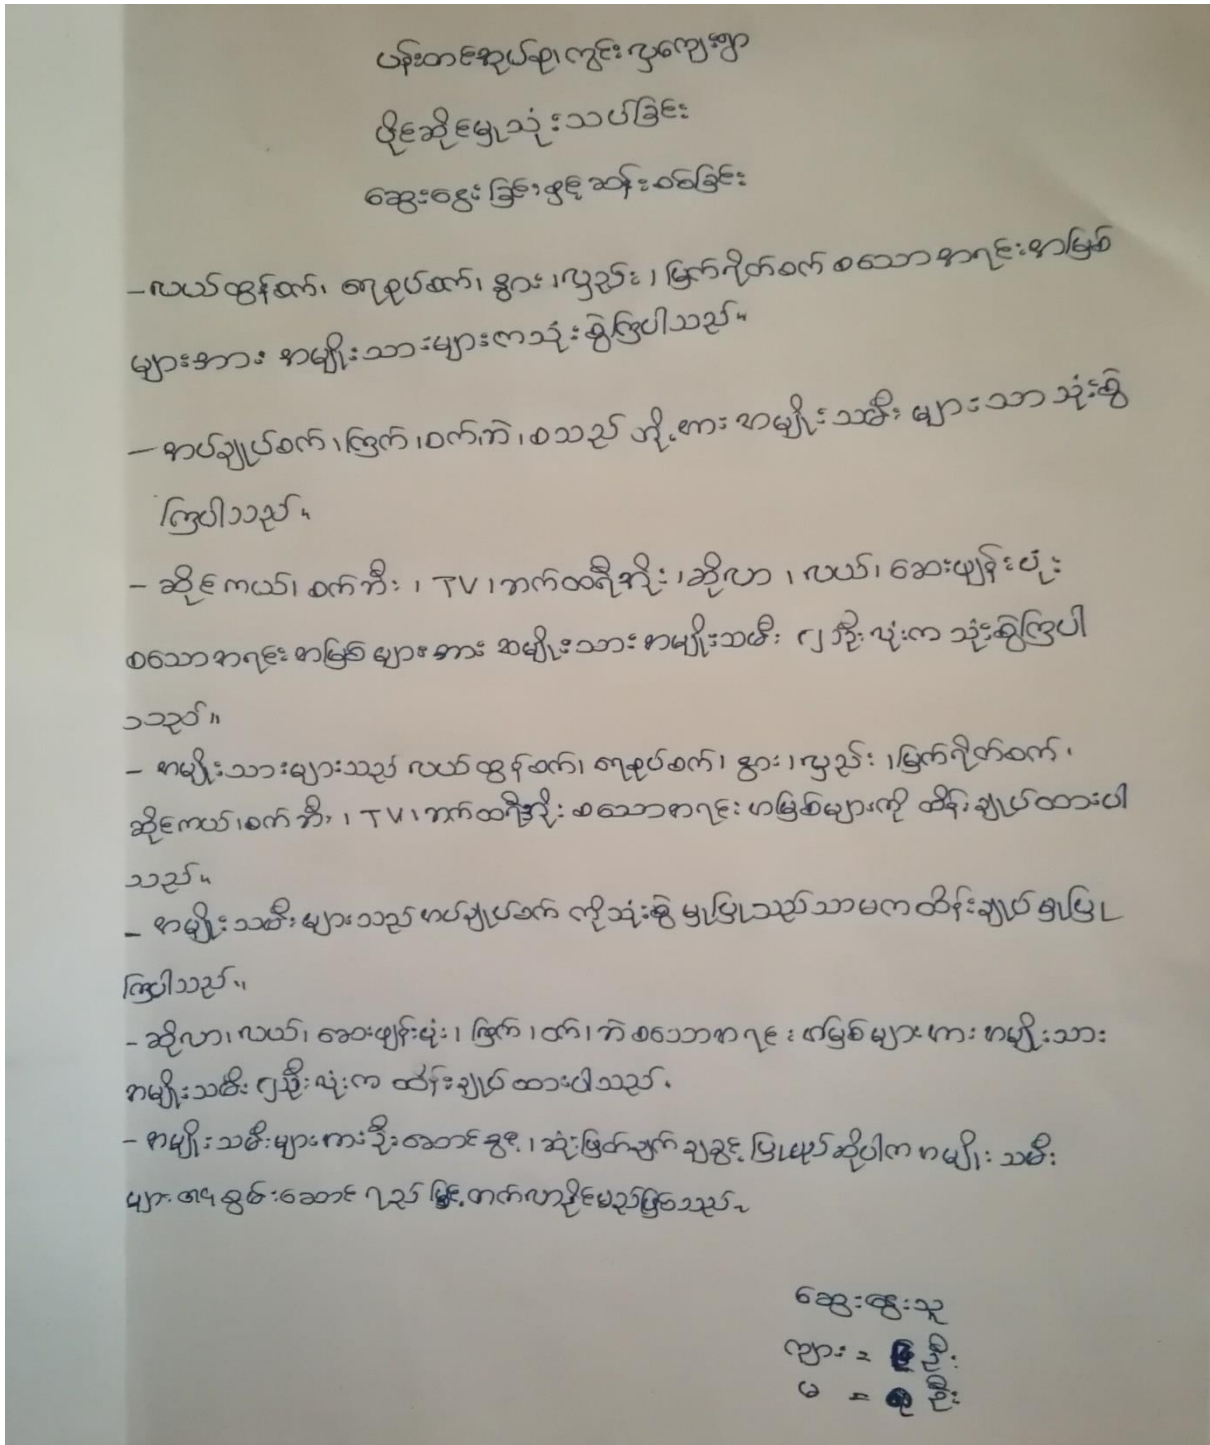 ပန်းတင်အုပ်စု၊ ကွင်းလှကျေးရွာ
ပိုင်ဆိုင်မှု သုံးသပ်ခြင်း
ဆွေးနွေးခြင်းနှင့် ဆန်းစစ်ခြင်း
- လယ်ထွန်စက်၊ ရေစုပ်စက်၊ နွား၊ လှည်း၊ မြက်ရိတ်စက် စသော အရင်းအမြစ်
များအား အမျိုးသားများကသုံးစွဲကြပါသည်။
- အပ်ချုပ်စက်၊ ကြက်၊ ဝက်၊ ဘဲ၊ စသည် တို့အား အမျိုးသမီးများသာ သုံးစွဲ
ကြပါသည်။
- ဆိုင်ကယ်၊ စက်ဘီး၊ TV၊ ဘက်ထရီအိုး၊ ဆိုလာ၊ လယ်၊ ဆေးဖျန်းပုံး
စသောအရင်းအမြစ်များအား အမျိုးသား အမျိုးသမီး ၂ဦးလုံးက သုံးစွဲကြပါ
သည်။
- အမျိုးသားများသည် လယ်ထွန်စက်၊ ရေစုပ်စက်၊ နွား၊ လှည်း၊ မြက်ရိတ်စက်၊
ဆိုင်ကယ်၊ စက်ဘီး၊ TV၊ ဘက်ထရီအိုး စသောအရင်းအမြစ်များကို ထိန်းချုပ်ထားပါ
သည်။
- အမျိုးသမီးများသည် အပ်ချုပ်စက် ကိုသုံးစွဲမှုပြုသည်သာမက ထိန်းချုပ်မှုပြု
ကြပါသည်။
- ဆိုလာ၊ လယ်၊ ဆေးဖျန်းပုံး၊ ကြက်၊ ဝက်၊ ဘဲ စသောအရင်းအမြစ်များအား အမျိုးသား
အမျိုးသမီး ၂ဦးလုံးက ထိန်းချုပ်ထားပါသည်။
- အမျိုးသမီးများအားဦးဆောင်ခွင့်၊ ဆုံးဖြတ်ချက်ချခွင့် ပြုမည်ဆိုပါက အမျိုးသမီး
များ၏ စွမ်းဆောင်ရည်မြင့်တက်လာနိုင်မည်ဖြစ်သည်။
ဆွေးနွေးသူ
ကျား = ဦး
မ = ဦး